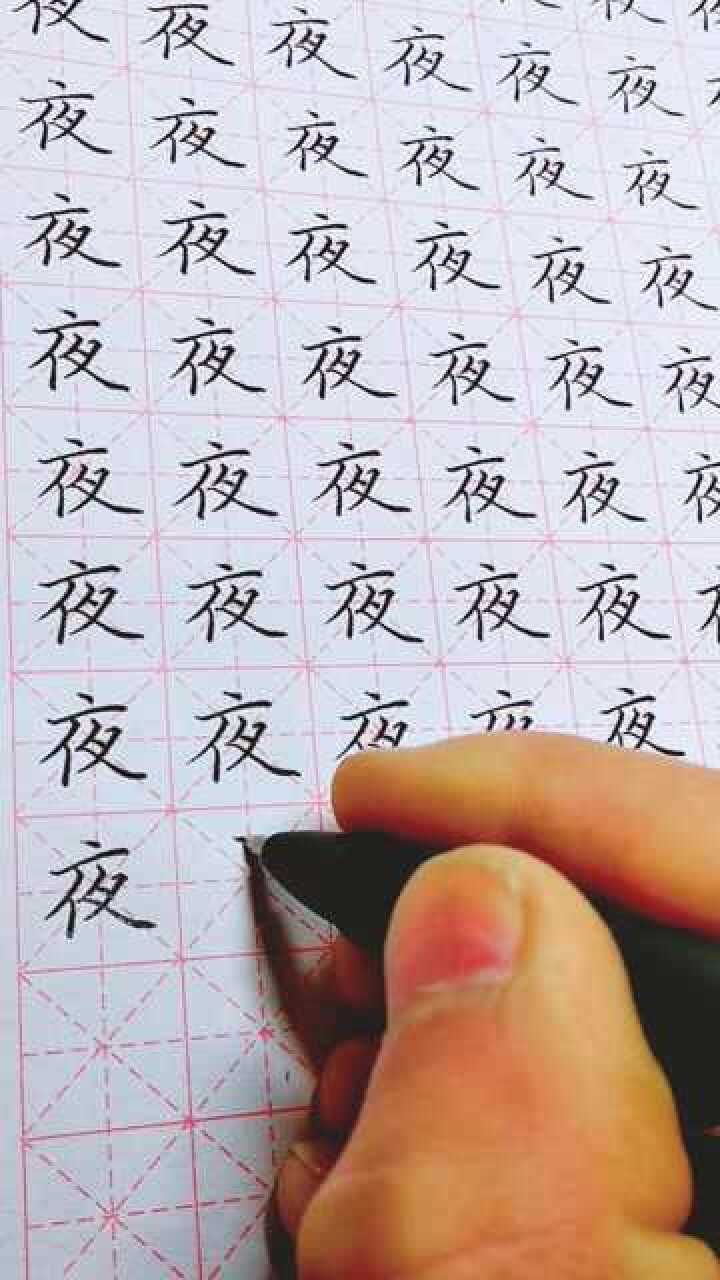 夜 夜 夜 夜 夜 夜
夜 夜 夜 夜 夜 夜
夜 夜 夜 夜 夜 夜
夜 夜 夜 夜 夜 夜
夜 夜 夜 夜 夜 夜
夜 夜 夜 夜 夜
夜 夜 夜 夜 夜
夜